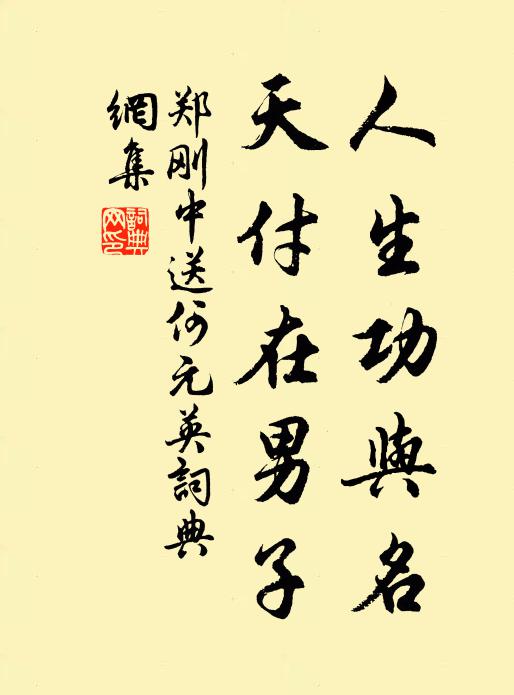 人生功與名
天付在男子
郑刚中送何元英詞典
網集
詞典
网印